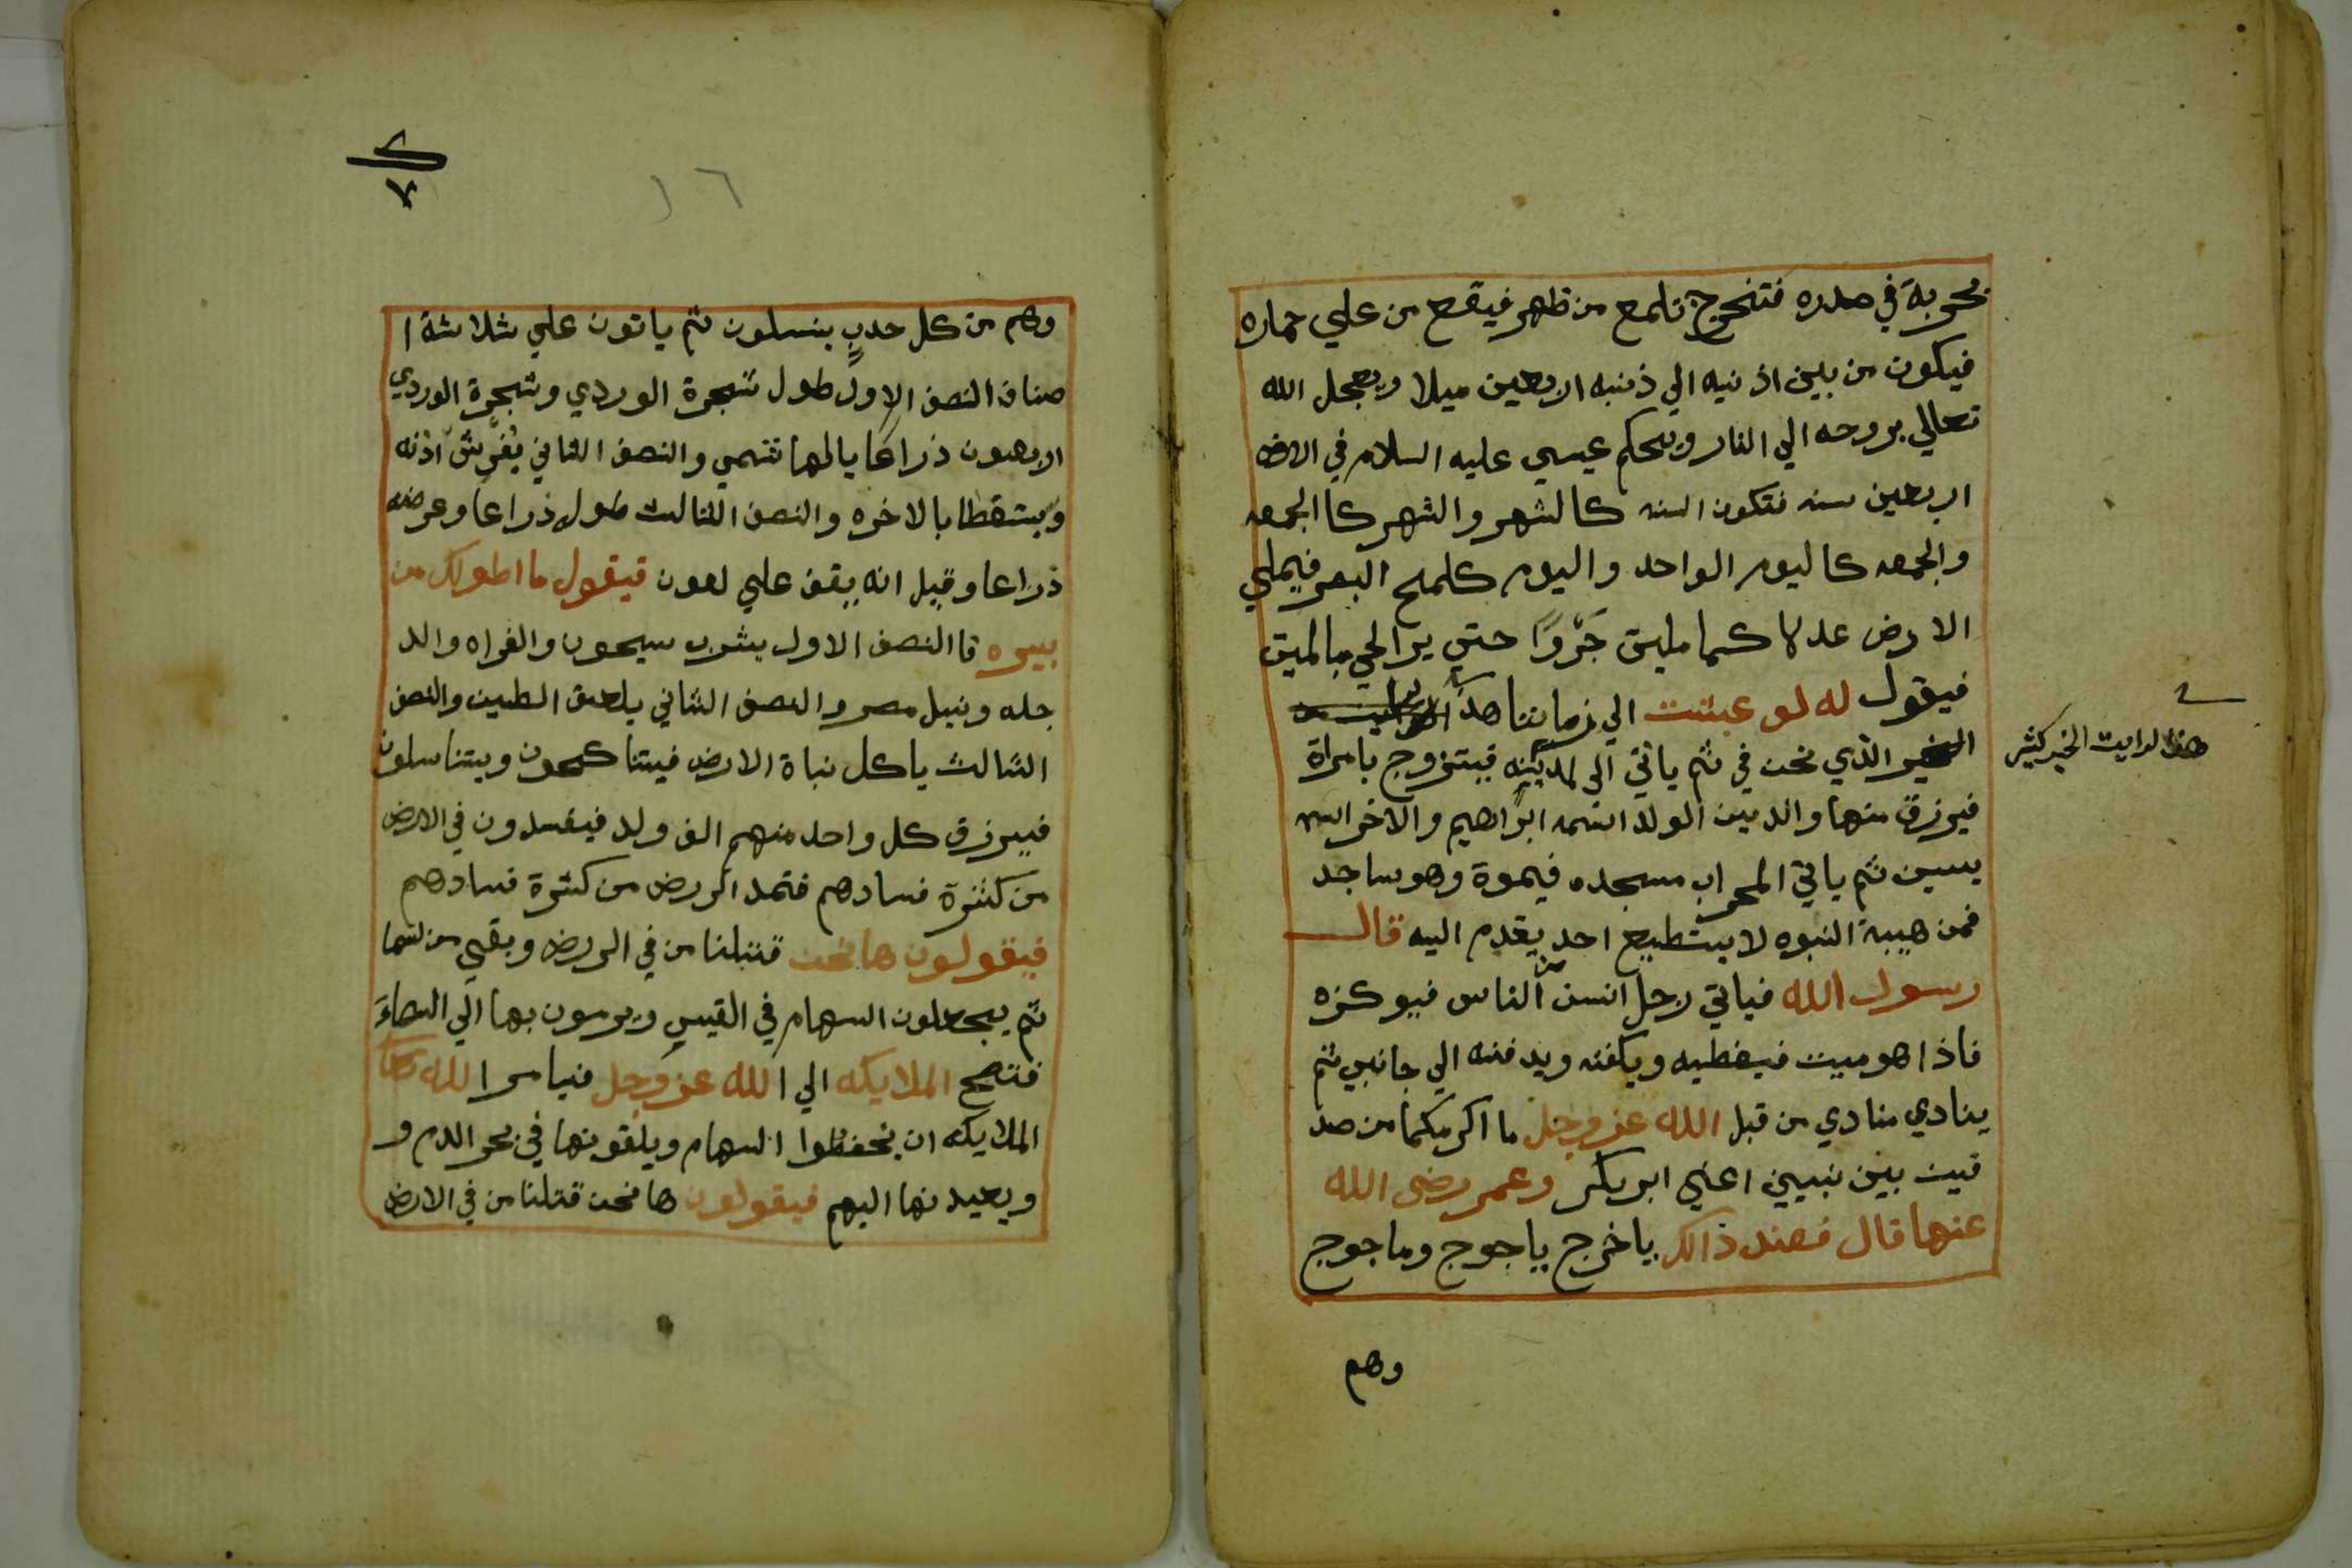 بحربة في صدره فتخرج تلمع من ظهر فيقع من علي حماره
فيكون من بين اذنيه الي ذنبه اربعين ميلا ويعجل الله
تعالي بروحه الي النار ويحكم عيسي عليه السلام في الارض
اربعين سنه فتكون السنه كالشهر والشهر كا الجمعه
والجمعه كاليوم الواحد واليوم كلمح البصر فيملي
الارض عدلا كما مليت جَوْرًا حتي يرا لحي بالميت
فيقول له لو عيشت الي زماننا هذا
الخير الذي نحن في ثم ياتي الي لمدينه فيتزوج بامراة
فيرزق منها والدين الولد اسمه ابراهيم والاخر اسمه
يسين ثم ياتي المحراب مسجده فيموة وهو ساجد
فمن هيبة النبوه لا يستطيع احد يقدم اليه قال
رسول الله فياتي رجل انسن من الناس فيوكزه
فاذا هو ميت فيغطيه ويكفنه ويدفنه الي جانبي ثم
ينادي منادي من قبل الله عز وجل ما اكرمكما من صد
قين بين نبيين اعني ابر بكر وعمر رضى الله
عنهما قال فعند ذالك ياخرج ياجوج وماجوج
وهم
هذا لوايت الخير كثير
٢
٧
١٦
وهم من كل حدبٍ ينسلون ثم ياتون علي ثلاثة ا
صناف النصف الاول طول شجرة الوردي وشجرة الوردي
اربعون ذراعا يالها تنمي والنصف الثاني يُفَرِش اذنه
ويستغطا بالاخره والنصف الثالث طول ذراعا وعرضه
ذراعا وقيل انه يقف علي لعون فيقول ما اطولك من
بيره فا النصف الاول يشرب سيحون والفراه والد
جله ونيل مصر والنصف الثاني يلعق الطين والنصف
الثالث ياكل نباة الارض فيتناكحون ويتناسلون
فيرزق كل واحد منهم الف ولد فيفسدون في الارض
من كثرة فسادهم فتمد الارض من كثرة فسادهم
فيقولون ها نحن قتلنا من في الارض وبقي من لسما
ثم يجعلون السهام في القيس ويرمون بها الي السماءَ
فتضج الملايكه الي الله عز وجل فيامر الله تعا
الملايكه ان يخفظوا السهام ويلقونها في بحر الدم و
ويعيدنها اليهم فيقولون ها نحن قتلنا من في الارض